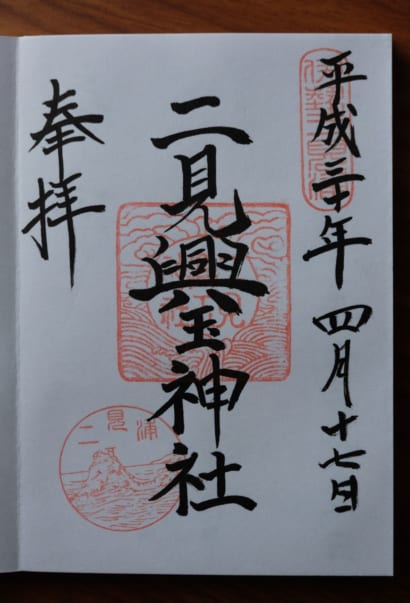 平成三十年 四月十七日
二見興玉神社
奉拝
二見浦